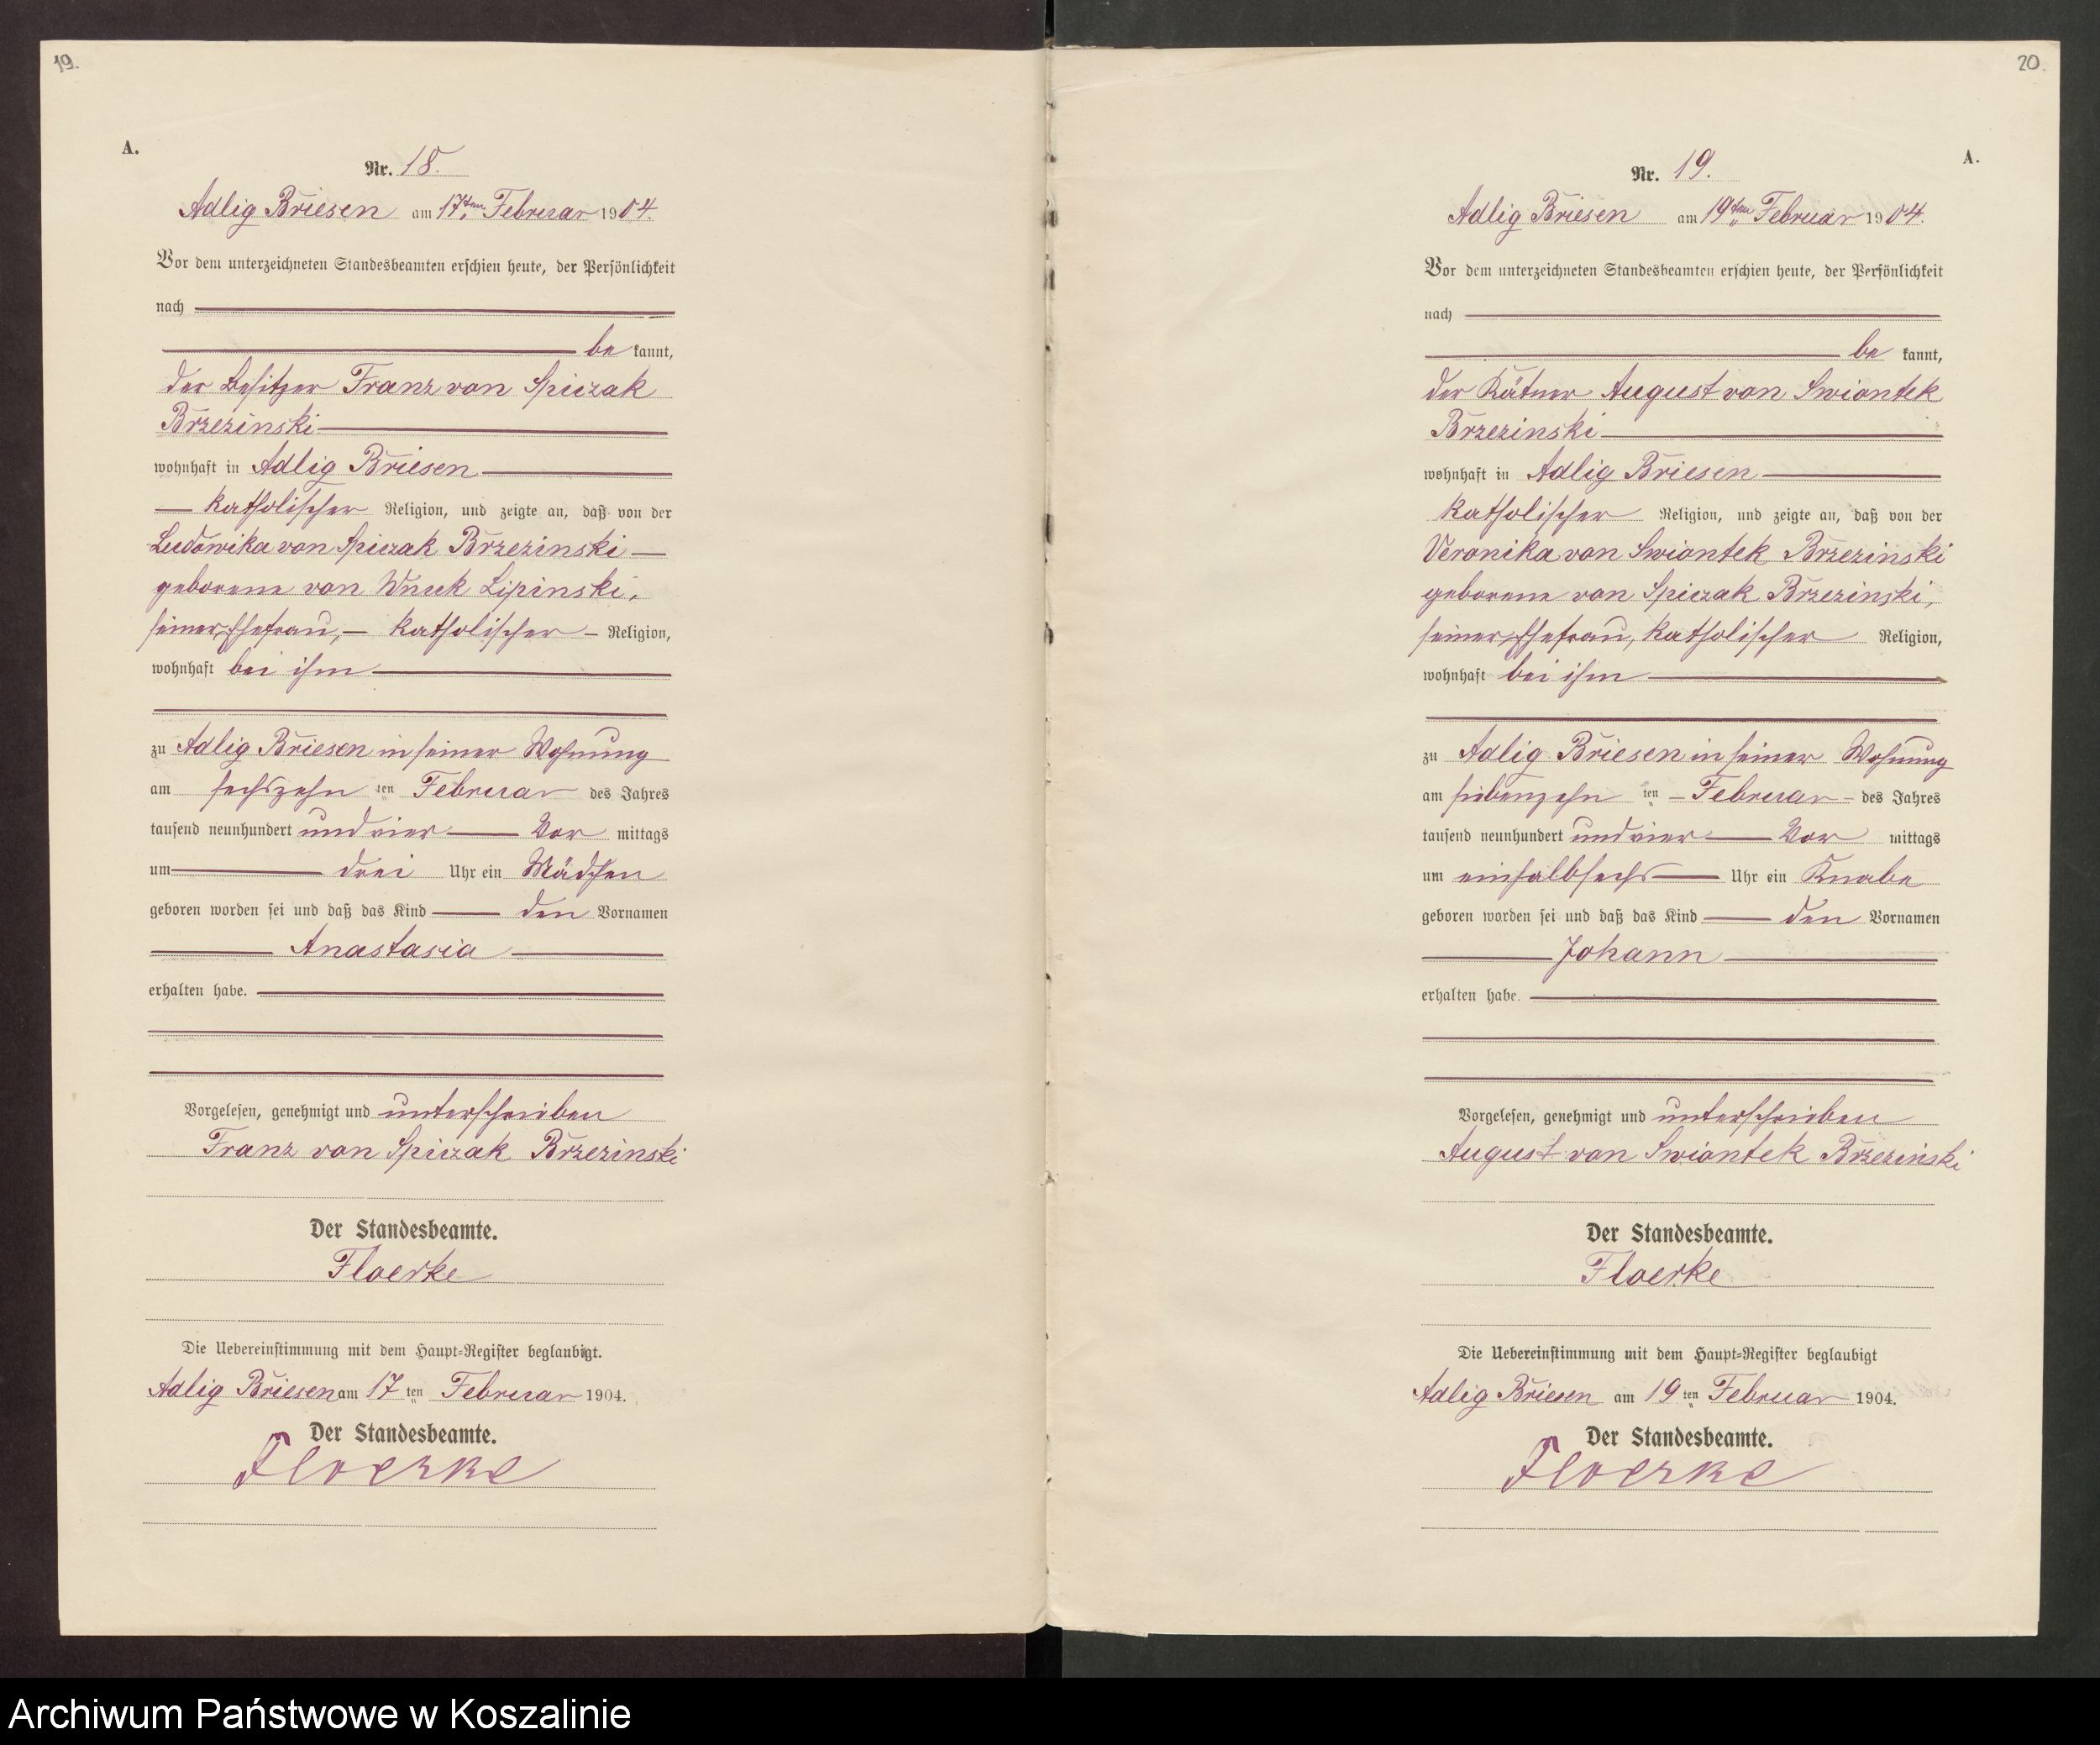 19.
A.
Nr. 18.
Adlig Briesen am 17ten Februar 1904.
Vor dem unterzeichneten Standesbeamten erschien heute, der Persönlichkeit
nach
be kannt,
der Besitzer Franz von Spiczak
Brzezinski
wohnhaft in Adlig Briesen
katholischer Religion, und zeigte an, daß von der
Ludowika von Spiczak Brzezinski
geborene von Wnuk Lipinski,
seiner Ehefrau, katholischer Religion,
wohnhaft bei ihm
zu Adlig Briesen in seiner Wohnung
am sechszehn ten Februar des Jahres
tausend neunhundert und vier Vor mittags
um drei Uhr ein Mädchen
geboren worden sei und daß das Kind den Vornamen
Anastasia
erhalten habe.
Vorgelesen, genehmigt und unterschrieben
Franz von Spiczak Brzezinski
Der Standesbeamte.
Floerke
Die Uebereinstimmung mit dem Haupt-Register beglaubigt.
Adlig Briesen am 17 ten Februar 1904.
Der Standesbeamte.
Floerke
20.
A.
Nr. 19.
Adlig Briesen am 19ten Februar 1904.
Vor dem unterzeichneten Standesbeamten erschien heute, der Persönlichkeit
nach
be kannt,
der Kätner August von Swiontek
Brzezinski
wohnhaft in Adlig Briesen
katholischer Religion, und zeigte an, daß von der
Veronika von Swiontek Brzezinski
geborene von Spiczak Brzezinski,
seiner Ehefrau, katholischer Religion,
wohnhaft bei ihm
zu Adlig Briesen in seiner Wohnung
am siebenzehn ten Februar des Jahres
tausend neunhundert und vier Vor mittags
um einhalbsechs Uhr ein Knabe
geboren worden sei und daß das Kind den Vornamen
Johann
erhalten habe.
Vorgelesen, genehmigt und unterschrieben
August von Swiontek Brzezinski
Der Standesbeamte.
Floerke
Die Uebereinstimmung mit dem Haupt-Register beglaubigt
Adlig Briesen am 19 ten Februar 1904.
Der Standesbeamte.
Floerke
Archiwum Państwowe w Koszalinie